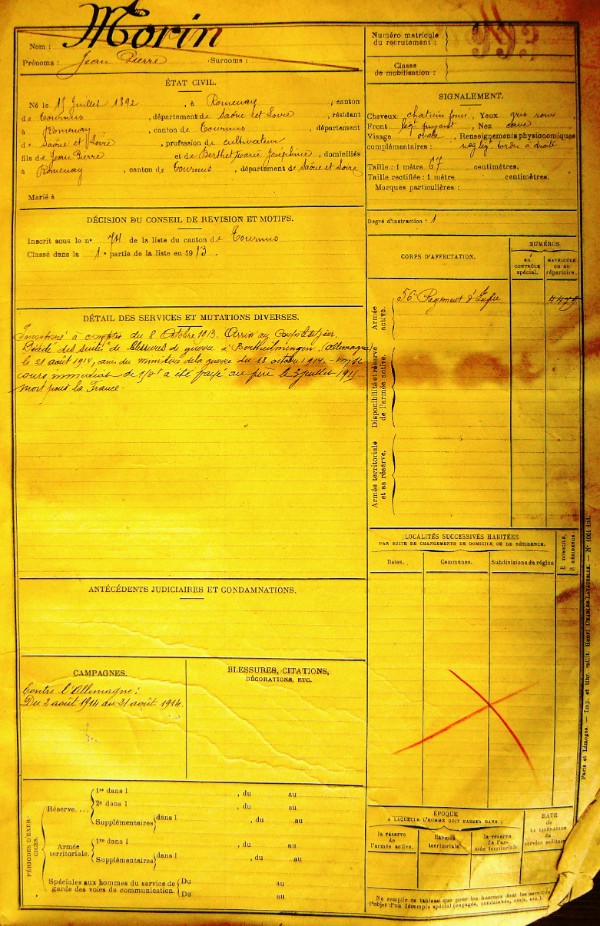 Nom : Morin
Prénoms : Jean Pierre Surnoms :
Numéro matricule
du recrutement :
Classe
de mobilisation :
ÉTAT CIVIL.
Né le 15 Juillet 1892, à Romenay, canton
de Tournus, département de Saône et Loire, résidant
à Romenay, canton de Tournus, département
de Saône et Loire, profession de cultivateur
fils de Jean Pierre et de Berthet Marie Joséphine, domiciliés
à Romenay, canton de Tournus, département de Saône et Loire
Marié à
SIGNALEMENT.
Cheveux châtain foncé, Yeux gris
Front fuyant, Nez cave
Visage ovale, Renseignements physionomiques
complémentaires : à droite
Taille : 1 mètre 67 centimètres.
Taille rectifiée : 1 mètre centimètres.
Marques particulières :
DÉCISION DU CONSEIL DE REVISION ET MOTIFS.
Inscrit sous le n° de la liste du canton de Tournus
Classé dans la 1e partie de la liste en 1913.
Degré d'instruction : 1
CORPS D'AFFECTATION.
NUMÉROS
AU
CONTRÔLE
spécial.
MATRICULE
OU AU
répertoire.
Armée
active.
56e Régiment d'Infie
Disponibilité et réserve
de l'armée active.
Armée territoriale
et sa réserve.
DÉTAIL DES SERVICES ET MUTATIONS DIVERSES.
Incorporé à compter du 8 Octobre 1913. Arrivé au Corps
Décédé des suites de blessures de guerre à (Allemagne)
le 21 août 1914, avis du ministère de la guerre du octobre 1914.
de 150f a été payé au père le juillet 1915
mort pour la France.
LOCALITÉS SUCCESSIVES HABITÉES
PAR SUITE DE CHANGEMENTS DE DOMICILE OU DE RÉSIDENCE.
Dates.
Communes.
Subdivisions de région
D. DOMICILE,
R. RÉSIDENCE
ANTÉCÉDENTS JUDICIAIRES ET CONDAMNATIONS.
CAMPAGNES.
Contre l'Allemagne :
Du 2 août 1914 au 21 août 1914.
BLESSURES, CITATIONS,
DÉCORATIONS, ETC.
PÉRIODES D'EXERCICES.
Réserve....
1re dans l , du au
2e dans l , du au
Supplémentaires dans l , du au
Armée
territoriale.
1re dans l , du au
Supplémentaires dans l , du au
Spéciales aux hommes du service de
garde des voies de communication.
Du au
Du au
ÉPOQUE
À LAQUELLE L'HOMME DOIT PASSER DANS :
la réserve
de l'armée active.
l'armée
territoriale.
la réserve
de l'armée territoriale.
DATE
de
la libération
du
service militaire.
Ne remplir ce tableau que pour les hommes dont les services
Paris et Limoges. — Imp. et libr. milit. Henri CHARLES-LAVAUZELLE. — N°